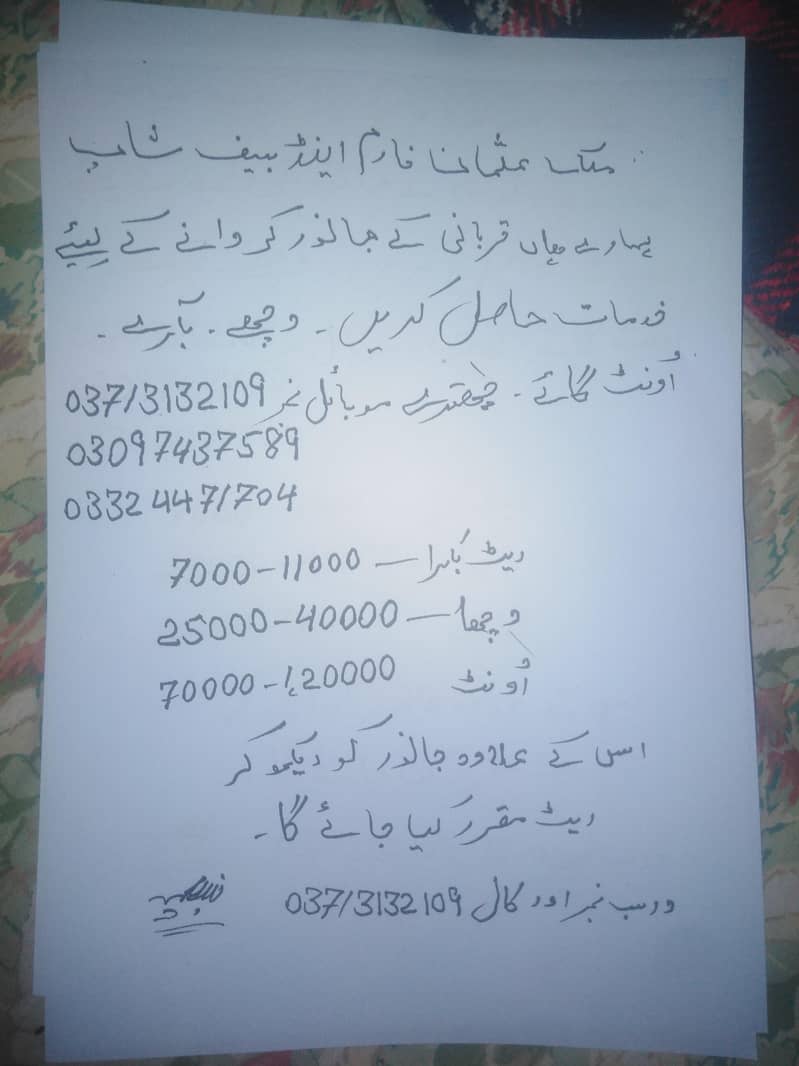 ملک عثمان فارم اینڈ بیف شاپ
ہمارے ہاں قربانی کے جانور کروانے کے لیئے
خدمات حاصل کریں ۔ وچھے ۔ بآکرے ۔
اُونٹ گائے ۔ موبائل نمبر 03713132109
03097437589
03324471704
ریٹ بکرا — 7000-11000
وچھا — 25000-40000
اُونٹ 70000-1,20000
اس کے علاوہ جانور کو دیکھ کر
ریٹ مقرر کیا جائے گا۔
ورسب نمبر اور کال 03713132109